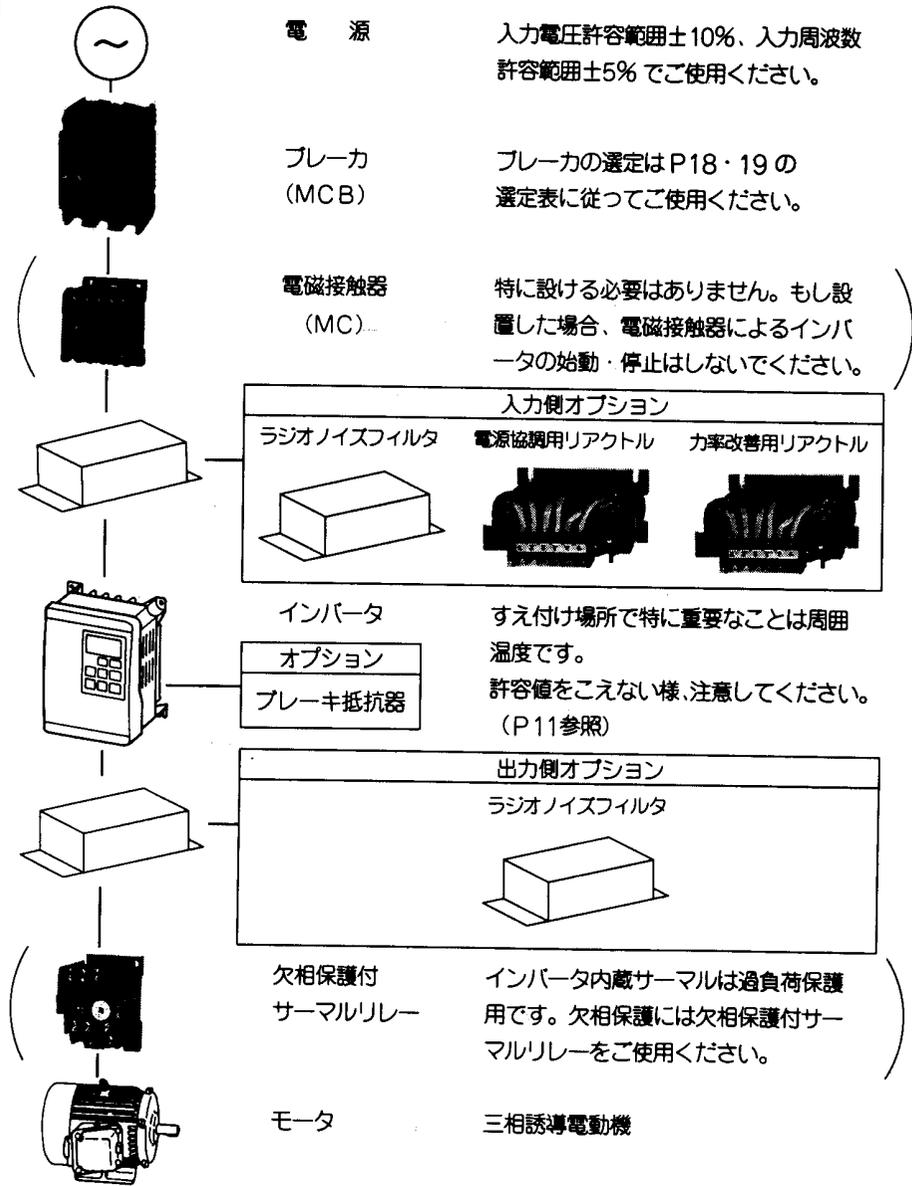 電　源
入力電圧許容範囲±10%、入力周波数
許容範囲±5% でご使用ください。
ブレーカ
(MCB)
ブレーカの選定はP18・19 の
選定表に従ってご使用ください。
電磁接触器
(MC)
特に設ける必要はありません。もし設
置した場合、電磁接触器によるインバ
ータの始動・停止はしないでください。
入力側オプション
ラジオノイズフィルタ
電源協調用リアクトル
力率改善用リアクトル
インバータ
すえ付け場所で特に重要なことは周囲
温度です。
許容値をこえない様、注意してください。
(P11参照)
オプション
ブレーキ抵抗器
出力側オプション
ラジオノイズフィルタ
欠相保護付
サーマルリレー
インバータ内蔵サーマルは過負荷保護
用です。欠相保護には欠相保護付サー
マルリレーをご使用ください。
モータ
三相誘導電動機